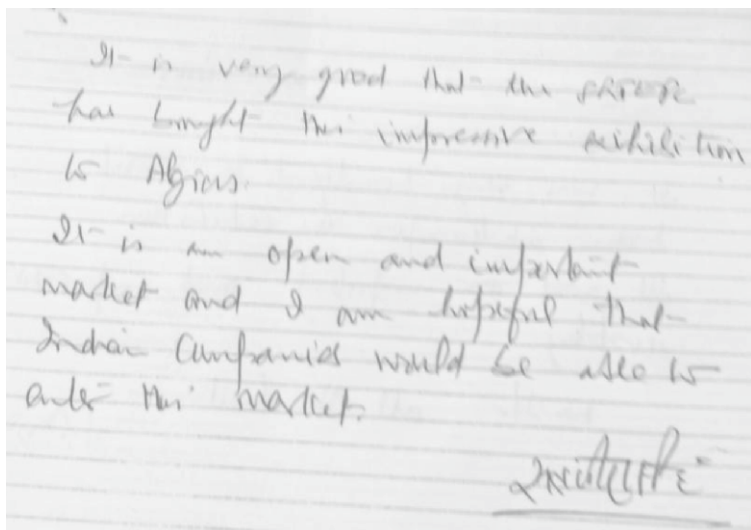 It is very good that the
has brought this impressive exhibition
to Algiers.
It is an open and important
market and I am hopeful that
Indian Companies would be able to
enter this market.